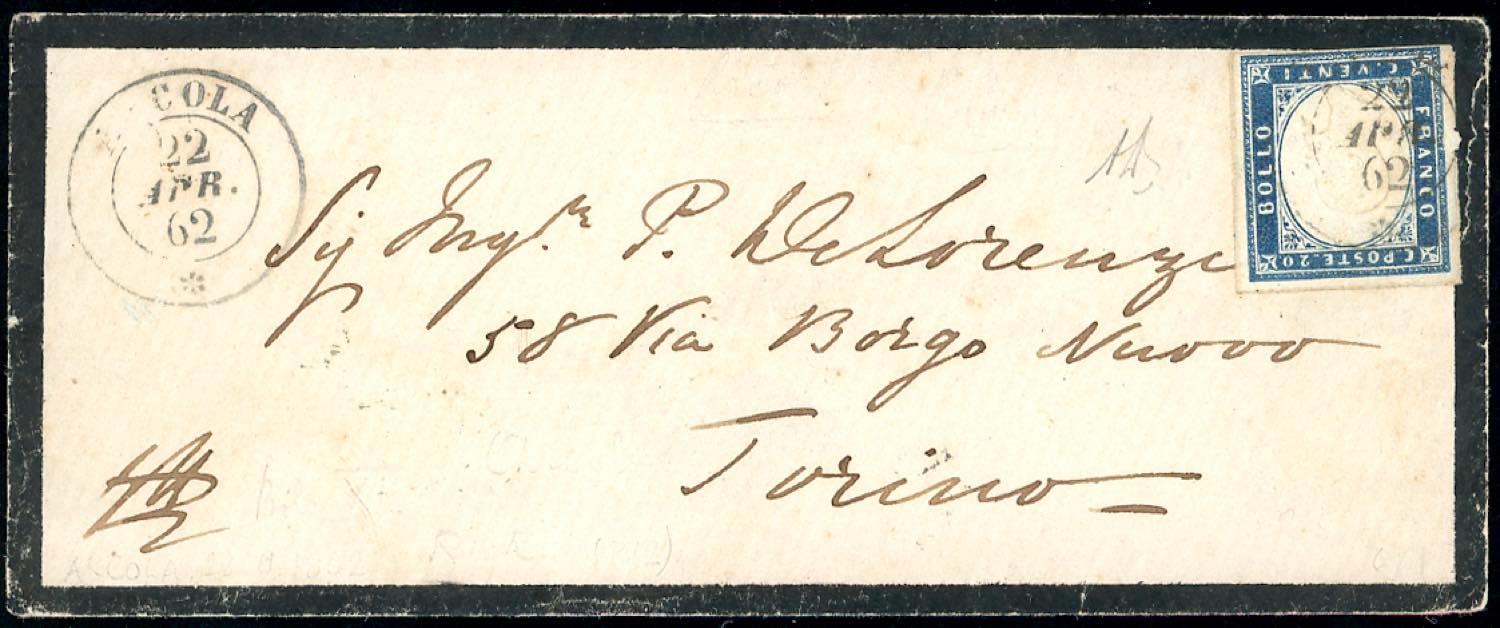 COLA
22
APR.
62
C. VENTI
BOLLO
FRANCO
C. POSTE. 20
22
62
Sig Ing.re P. DeLorenzi
58 Via Borgo Nuovo
Torino